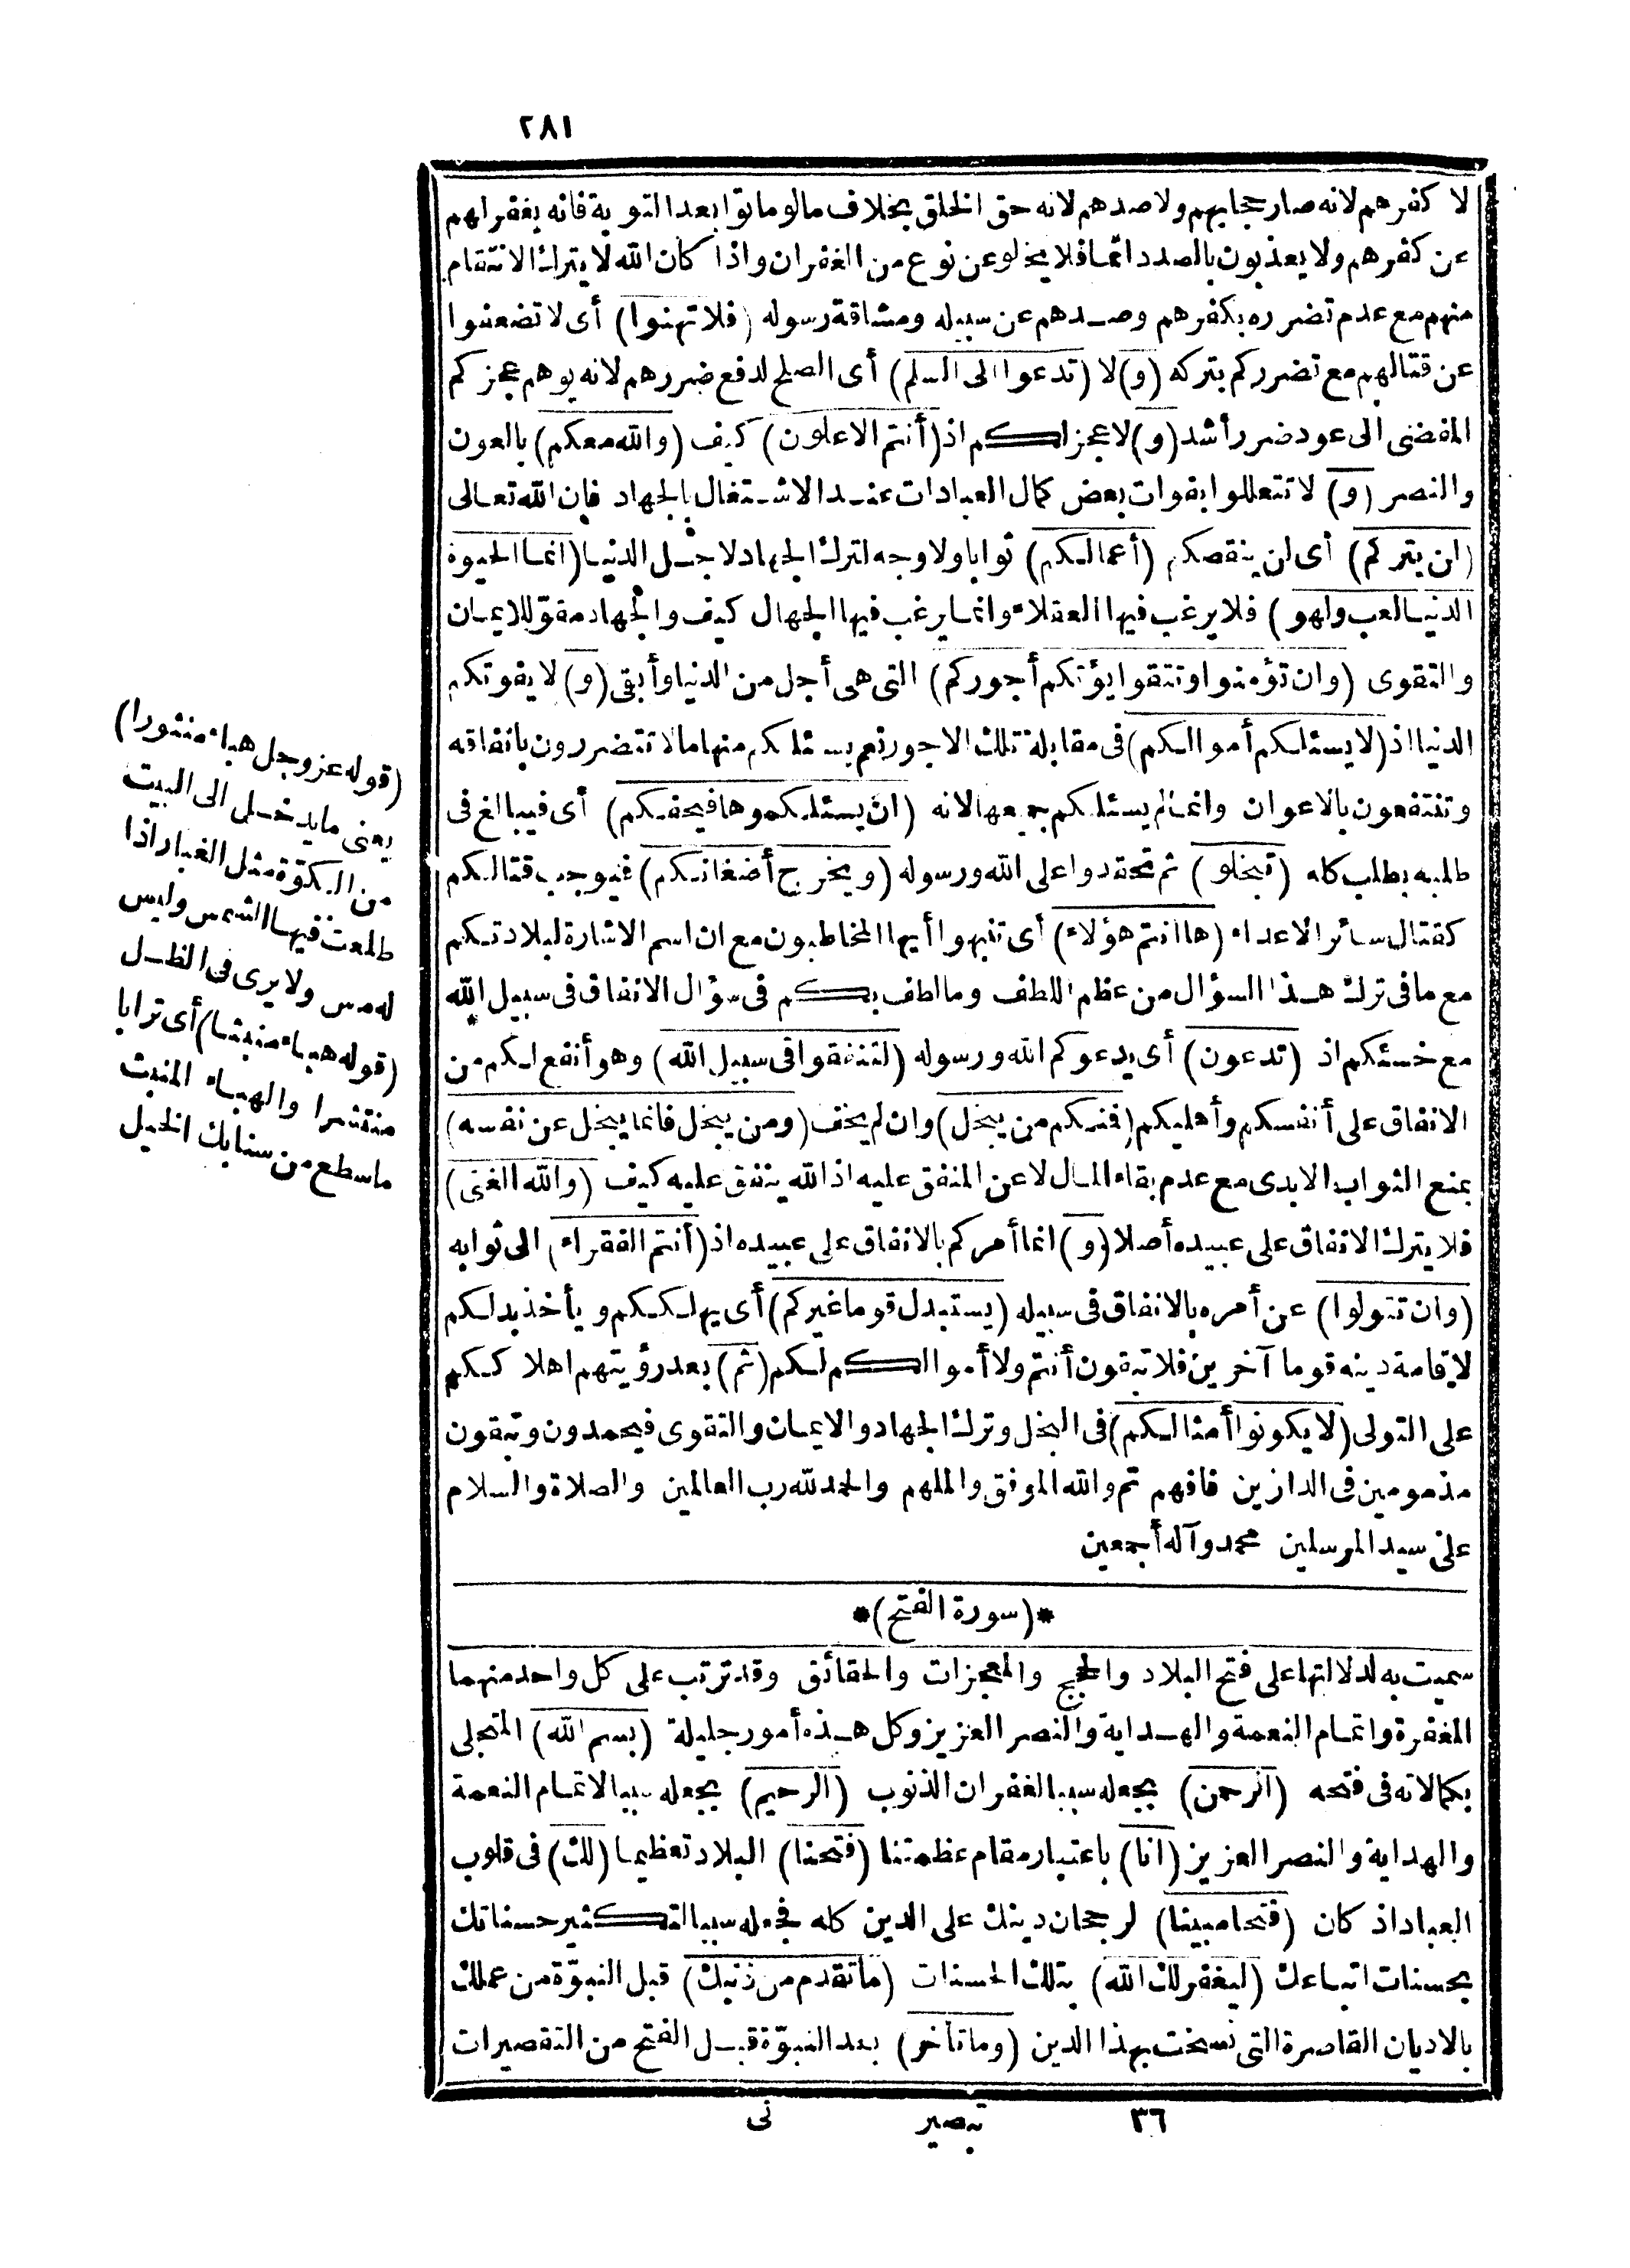 ٢٨١
لا كفرهم لانه صار حجابهم ولا صدهم لانه حق الخلق بخلاف مالو ماتوا بعد التوبة فانه يغفر لهم
عن كفرهم ولا يعذبون بالصد دائما فلا يخلو عن نوع من الغفران واذا كان الله لا يترك الانتقام
منهم مع عدم تضرره بكفرهم وصدهم عن سبيله ومشاقة رسوله (فلا تهنوا) أى لا تضعفوا
عن قتالهم مع تضرركم بتركه (و) لا (تدعوا الى السلم) أى الصلح لدفع ضررهم لانه يوهم عجزكم
المفضى الى عود ضرر أشد (و) لا عجز لكم اذ (أنتم الاعلون) كيف (والله معكم) بالعون
والنصر (و) لا تتعللوا بفوات بعض كمال العبادات عند الاشتغال بالجهاد فان الله تعالى
(لن يتركم) أى لن ينقصكم (أعمالكم) ثوابا ولا وجه لترك الجهاد لاجل الدنيا (انما الحيوة
الدنيا لعب ولهو) فلا يرغب فيها العقلاء وانما يرغب فيها الجهال كيف والجهاد مقوّ للايمان
والتقوى (وان تؤمنوا وتتقوا يؤتكم أجوركم) التى هى أجل من الدنيا وأبقى (و) لا يفوتكم
الدنيا اذ (لا يسئلكم أموالكم) فى مقابلة تلك الاجور نعم يسئلكم منها مالا تتضررون بانفاقه
وتنتفعون بالاعوان وانما لم يسئلكم جميعها لانه (ان يسئلكموها فيحفكم) أى فيبالغ فى
طلبه بطلب كله (تبخلو) ثم تحقدوا على الله ورسوله (ويخرج أضغانكم) فيوجب قتالكم
كقتال سائر الاعداء (ها أنتم هؤلاء) أى تنبهوا أيها المخاطبون مع ان اسم الاشارة لبلادتكم
مع ما فى ترك هذا السؤال من عظم اللطف وما لطف بكم فى سؤال الانفاق فى سبيل الله
مع خستكم اذ (تدعون) أى يدعوكم الله ورسوله (لتنفقوا فى سبيل الله) وهو أنفع لكم من
الانفاق على أنفسكم وأهليكم (فمنكم من يبخل) وان لم يحف (ومن يبخل فانما يبخل عن نفسه)
بمنع الثواب الابدى مع عدم بقاء المال لا عن المنفق عليه اذ الله ينفق عليه كيف (والله الغنى)
فلا يترك الانفاق على عبيده أصلا (و) انما أمركم بالانفاق على عبيده اذ (أنتم الفقراء) الى ثوابه
(وان تتولوا) عن أمره بالانفاق فى سبيله (يستبدل قوما غيركم) أى يهلككم ويأخذ بدلكم
لاقامة دينه قوما آخرين فلا تبقون أنتم ولا أموالكم لكم (ثم) بعد رؤيتهم اهلا ككم
على التولى (لا يكونوا أمثالكم) فى البخل وترك الجهاد والايمان والتقوى فيحمدون وتبقون
مذمومين فى الدارين فافهم تم والله الموفق والملهم والحمد لله رب العالمين والصلاة والسلام
على سيد المرسلين محمد وآله أجمعين
*(سورة الفتح)*
سميت به لدلالتها على فتح البلاد والحجج والمعجزات والحقائق وقد ترتب على كل واحد منهما
المغفرة واتمام النعمة والهداية والنصر العزيز وكل هذه أمور جليلة (بسم الله) المتجلى
بكمالاته فى فتحه (الرحمن) بجعله سببا لغفران الذنوب (الرحيم) بجعله سببا لاتمام النعمة
والهداية والنصر العزيز (انا) باعتبار مقام عظمتنا (فتحنا) البلاد تعظيما (لك) فى قلوب
العباد اذ كان (فتحا مبينا) لرجحان دينك على الدين كله فجعله سببا لتكثير حسناتك
بحسنات اتباعك (ليغفر لك الله) بتلك الحسنات (ما تقدم من ذنبك) قبل النبوّة من عملك
بالاديان القاصرة التى نسخت بهذا الدين (وما تأخر) بعد النبوّة قبل الفتح من التقصيرات
٣٦ تبصير نى
(قوله عز وجل هباء منثورا)
يعنى ما يدخل الى البيت
من الكوّة مثل الغبار اذا
طلعت فيها الشمس وليس
له مس ولا يرى فى الظل
(قوله هباء منبثا) أى ترابا
منتشرا والهباء المنبث
ما سطع من سنابك الخيل